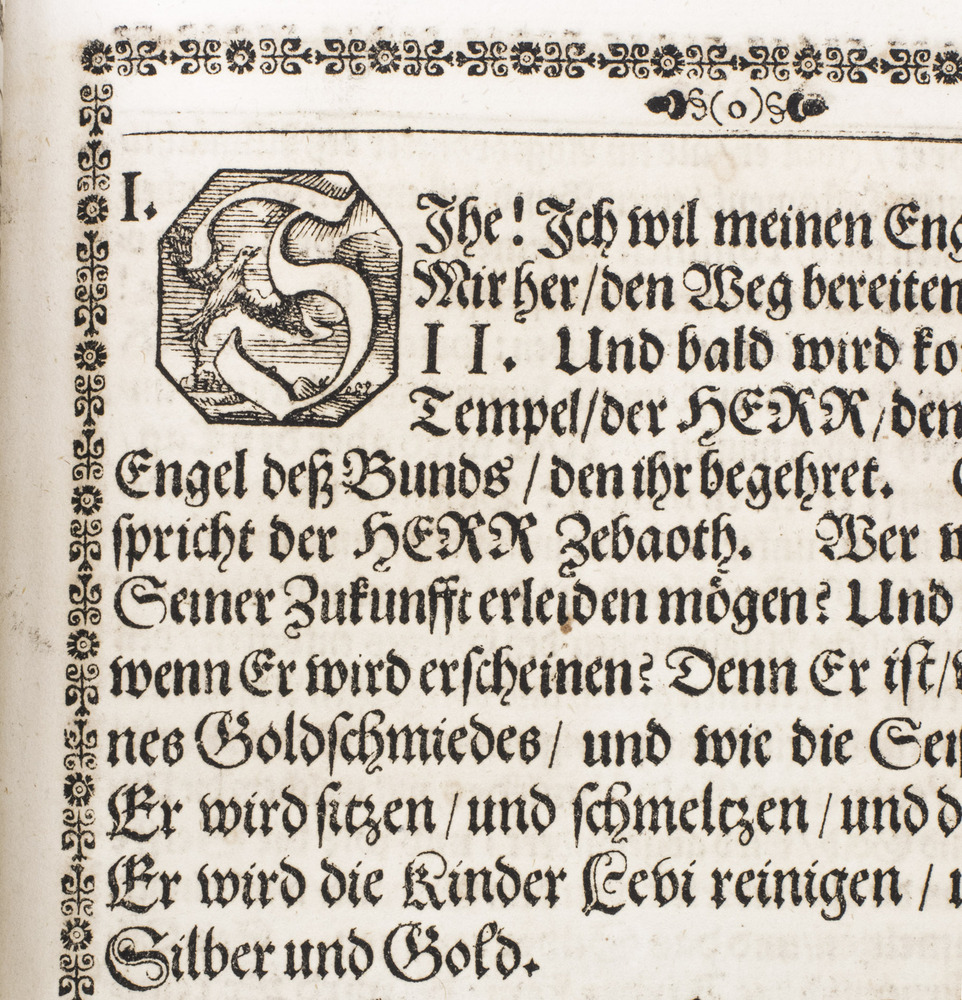 (o)
I. SJhe! Jch wil meinen Eng
Mir her/den Weg bereiten
II. Und bald wird ko
Tempel/der HERR/den
Engel deß Bunds / den ihr begehret.
spricht der HERR Zebaoth. Wer w
Seiner Zukunfft erleiden mögen? Und
wenn Er wird erscheinen? Denn Er ist/
nes Goldschmiedes/ und wie die Sei
Er wird sitzen / und schmeltzen / und d
Er wird die Kinder Levi reinigen / u
Silber und Gold.